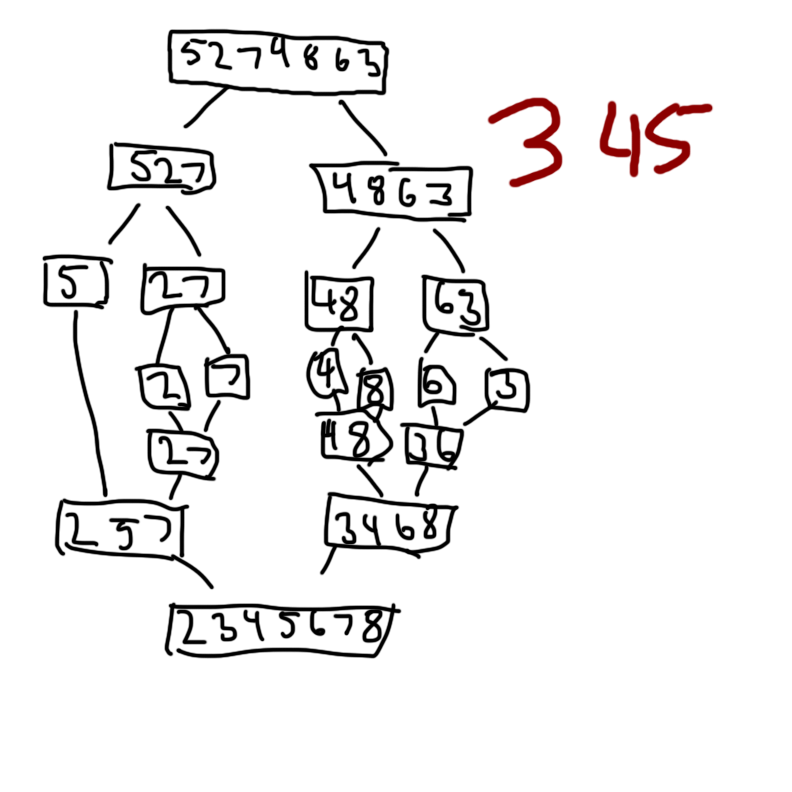 5274863
3 45
527
4863
5
27
48
63
2
7
4
8
6
3
27
48
36
257
3468
2345678